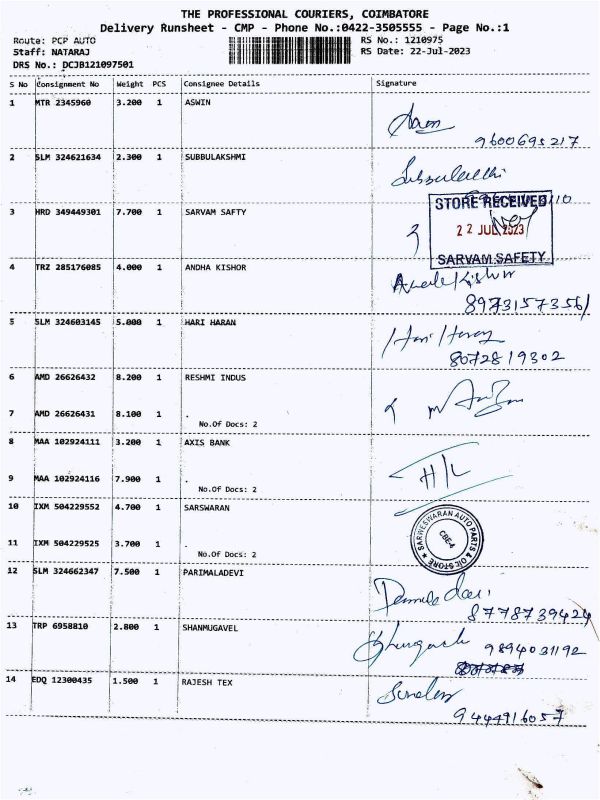 THE PROFESSIONAL COURIERS, COIMBATORE
Delivery Runsheet - CMP - Phone No.:0422-3505555 - Page No.:1
Route: PCP AUTO RS No.: 1210975
Staff: NATARAJ RS Date: 22-Jul-2023
DRS No.: DCJB121097501
S No Consignment No Weight PCS Consignee Details Signature
1 MTR 2345960 3.200 1 ASWIN
9600695217
2 SLM 324621634 2.300 1 SUBBULAKSHMI
Subbulakshmi
STORE RECEIVED
3 HRD 349449301 7.700 1 SARVAM SAFTY
22 JUL 2023
SARVAM SAFETY
4 TRZ 285176085 4.000 1 ANDHA KISHOR
8973157356
5 SLM 324603145 5.000 1 HARI HARAN
Hari Haran
8072819302
6 AMD 26626432 8.200 1 RESHMI INDUS
7 AMD 26626431 8.100 1 .
No.Of Docs: 2
8 MAA 102924111 3.200 1 AXIS BANK
H/L
9 MAA 102924116 7.900 1 .
No.Of Docs: 2
10 IXM 504229552 4.700 1 SARSWARAN
SARWESWARAN AUTO PARTS & OIL STORE
CBE-4
11 IXM 504229525 3.700 1 .
No.Of Docs: 2
12 SLM 324662347 7.500 1 PARIMALADEVI
8778739424
13 TRP 6958810 2.800 1 SHANMUGAVEL
9894031192
14 EDQ 12300435 1.500 1 RAJESH TEX
9444916057